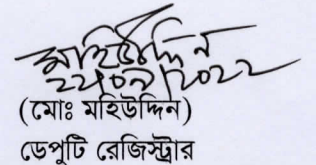 মহিউদ্দিন
২২/০৯/২০২২
(মোঃ মহিউদ্দিন)
ডেপুটি রেজিস্ট্রার